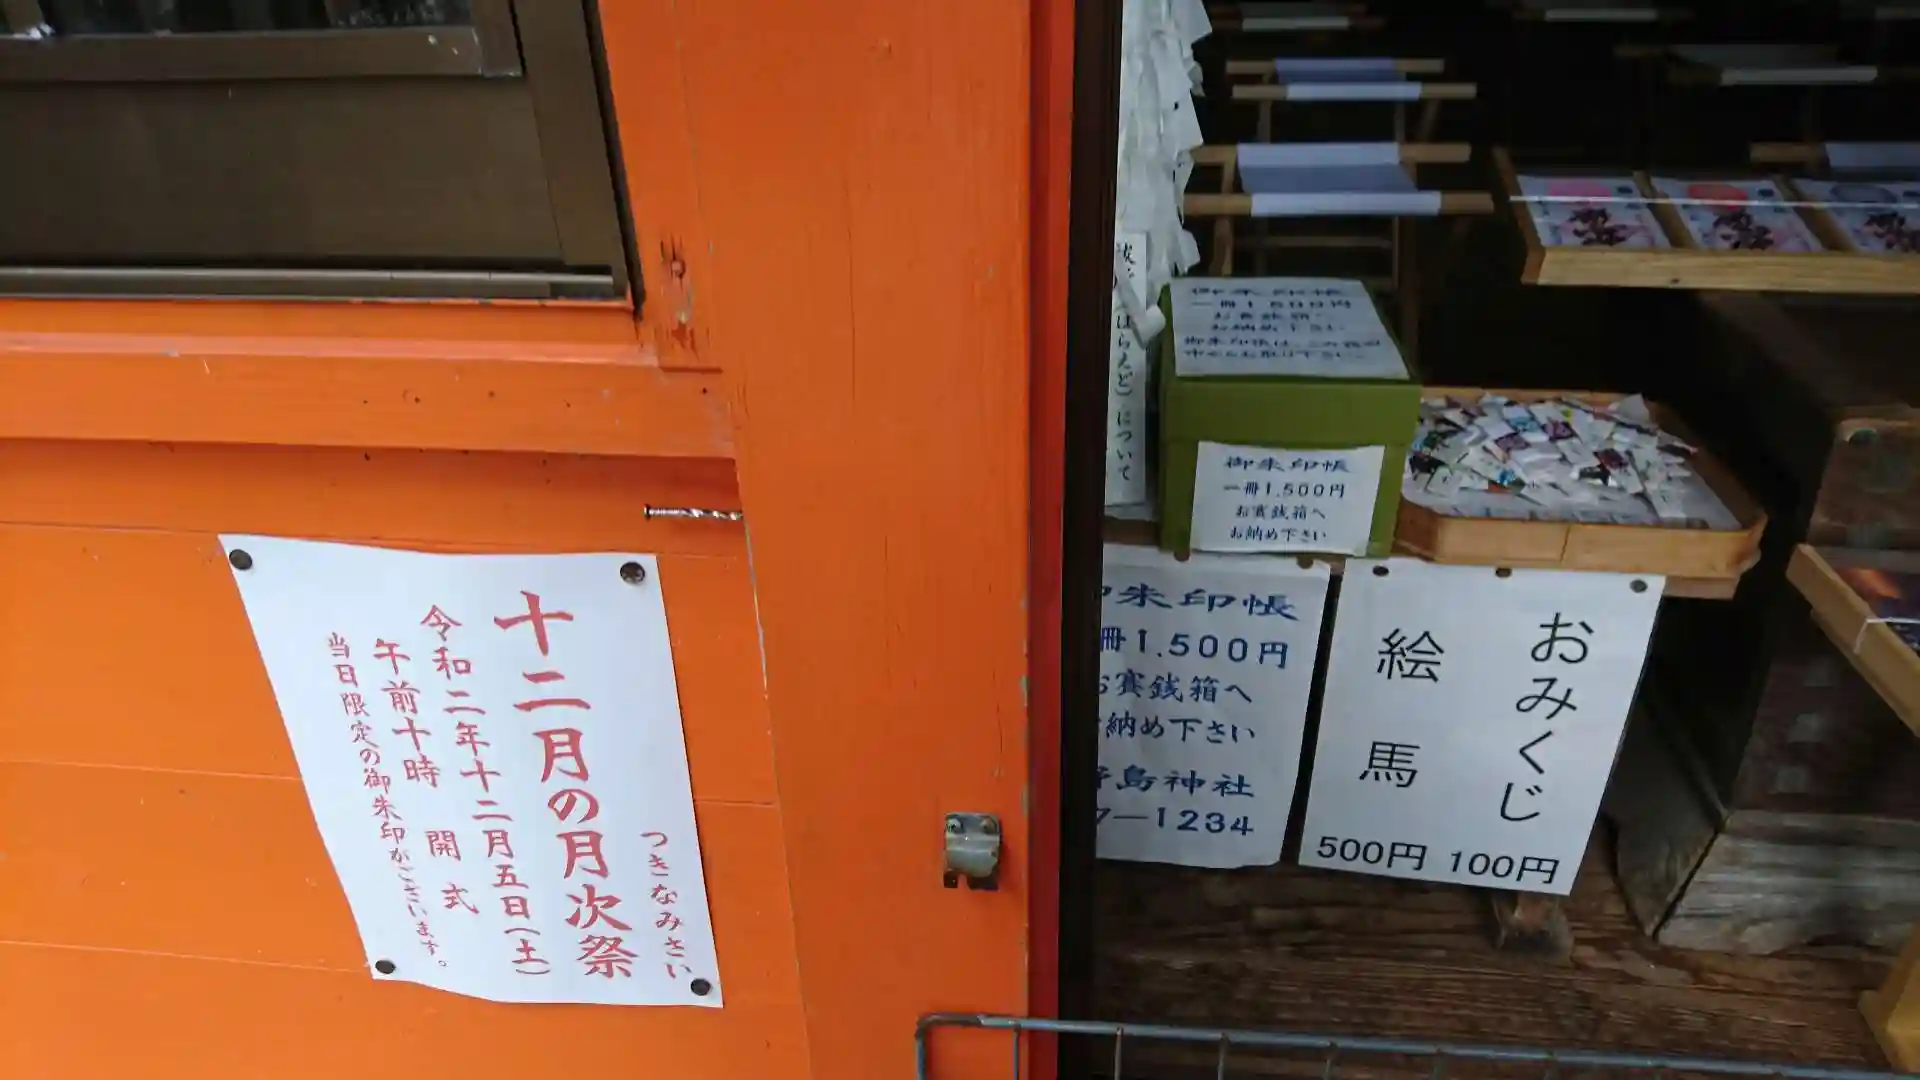 つきなみさい
十二月の月次祭
令和二年十二月五日(土)
午前十時 開式
当日限定の御朱印がございます。
はらえど)について
御朱印帳
一冊1500円
お賽銭箱へ
お納め下さい
御朱印帳は、この箱の
中からお取り下さい。
御朱印帳
一冊1,500円
お賽銭箱へ
お納め下さい
朱印帳
冊1.500円
賽銭箱へ
納め下さい
島神社
―1234
おみくじ
100円
絵馬
500円